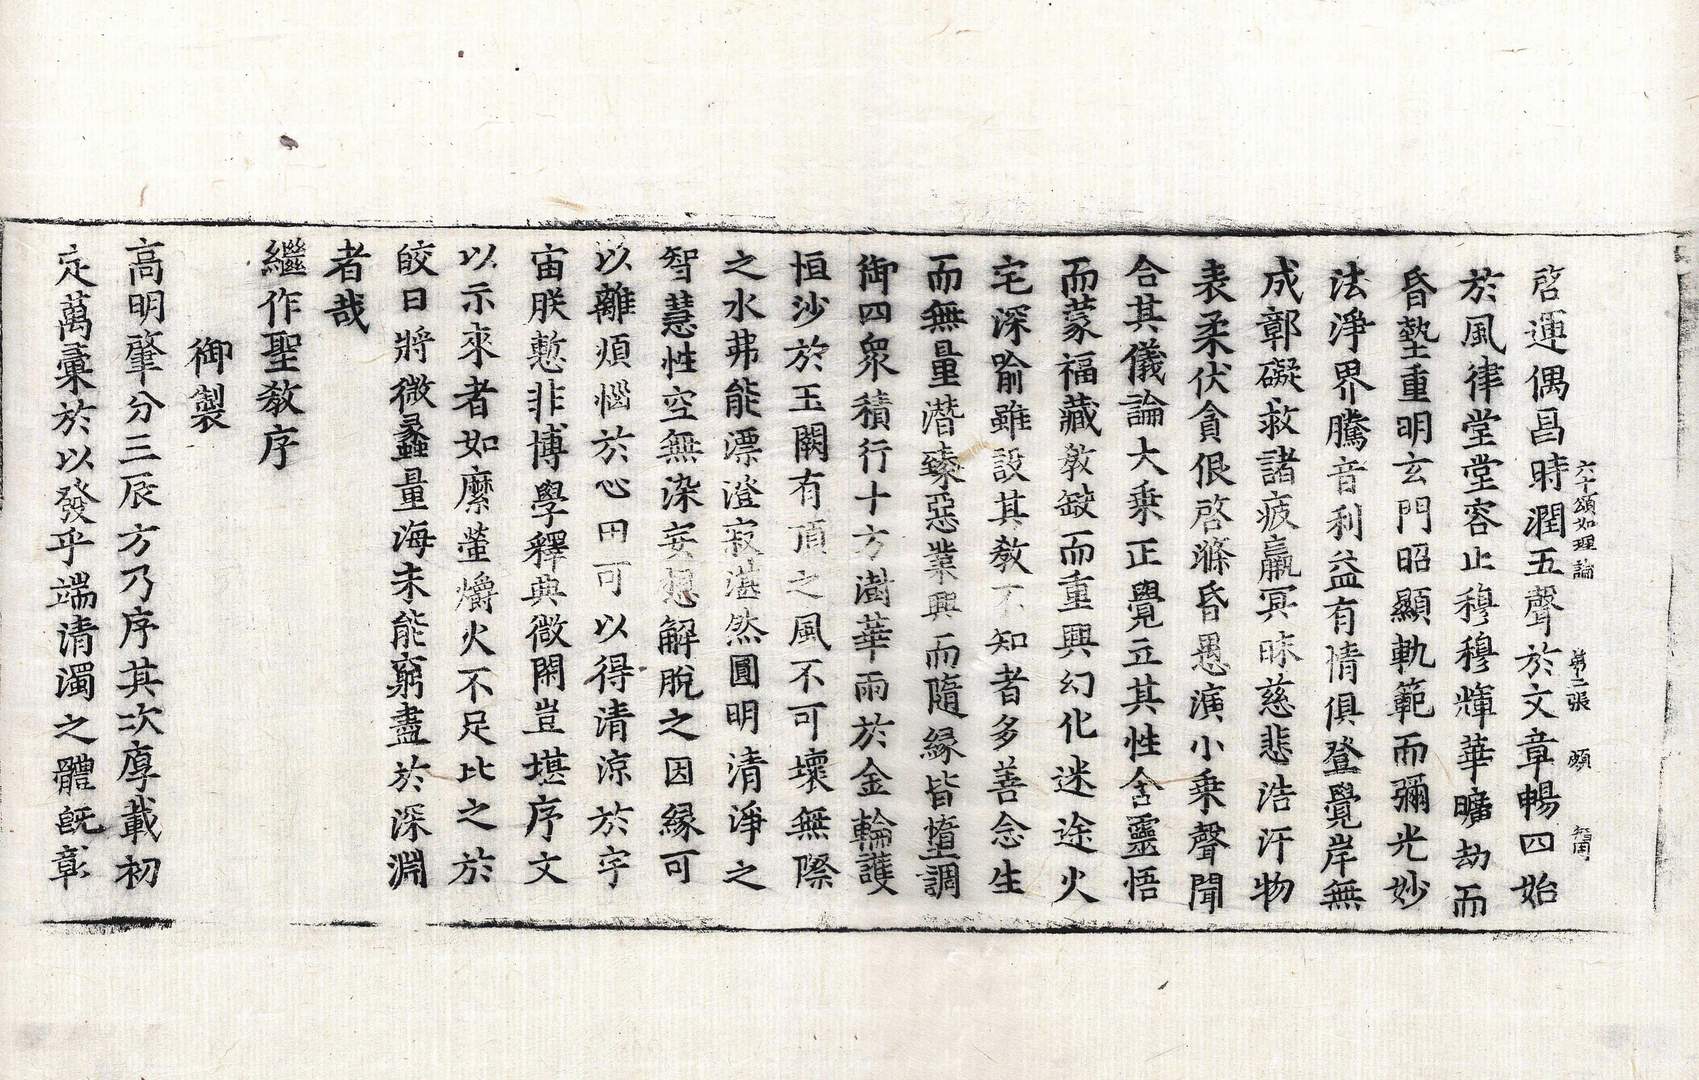 六十頌如理論 第二張 㒹 智周
啓運偶昌時潤五聲於文章暢四始
於風律堂堂容止穆穆輝華曠劫而
昏墊重明玄門昭顯軌範而彌光妙
法淨界騰音利益有情俱登覺岸無
成鄣礙救諸疲羸冥昧慈悲浩汗物
表柔伏貪佷啓滌昏愚演小乗聲聞
合其儀論大乗正覺立其性含靈悟
而蒙福藏教缺而重興幻化迷途火
宅深喻雖設其教不知者多善念生
而無量潛臻惡業興而隨緣皆墮調
御四衆積行十方澍華雨於金輪護
恒沙於玉闕有頂之風不可壞無際
之水弗能漂澄寂湛然圓明清淨之
智慧性空無染妄想解脫之因緣可
以離煩惱於心田可以得清涼於宇
宙朕慙非博學釋典微閑豈堪序文
以示來者如縻螢爝火不足比之於
皎日將微蠡量海未能窮盡於深淵
者哉
繼作聖教序
御製
高明肇分三辰方乃序其次厚載初
定萬彙於以發乎端清濁之體旣彰